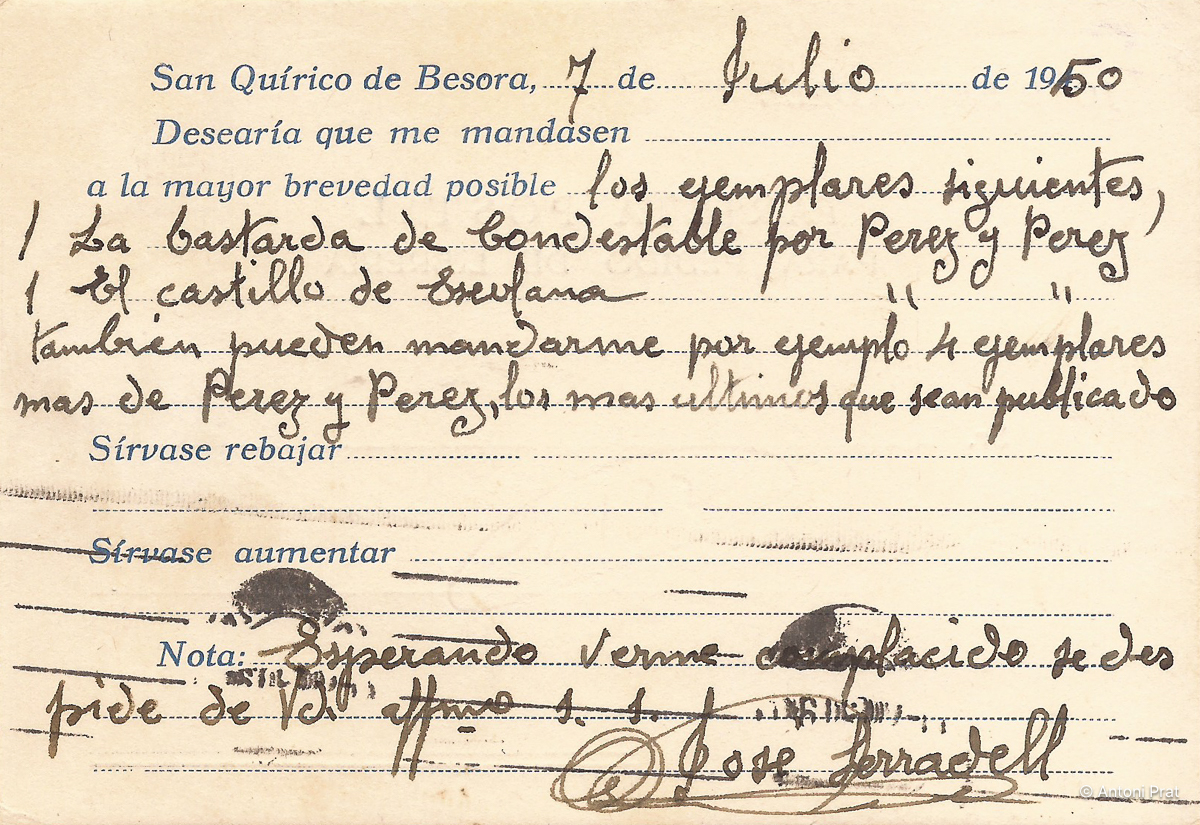 San Quírico de Besora, 7 de Julio de 1950
Desearía que me mandasen
a la mayor brevedad posible los ejemplares siguientes,
1 La bastarda de Condestable por Perez y Perez
1 El castillo de Escolana " "
tambien pueden mandarme por ejemplo 4 ejemplares
mas de Perez y Perez, los mas ultimos que sean publicado
Sírvase rebajar
Sírvase aumentar
Nota: Esperando verme complacido se des
pide de Vd. affmo s. s.
Jose Serradell
© Antoni Prat